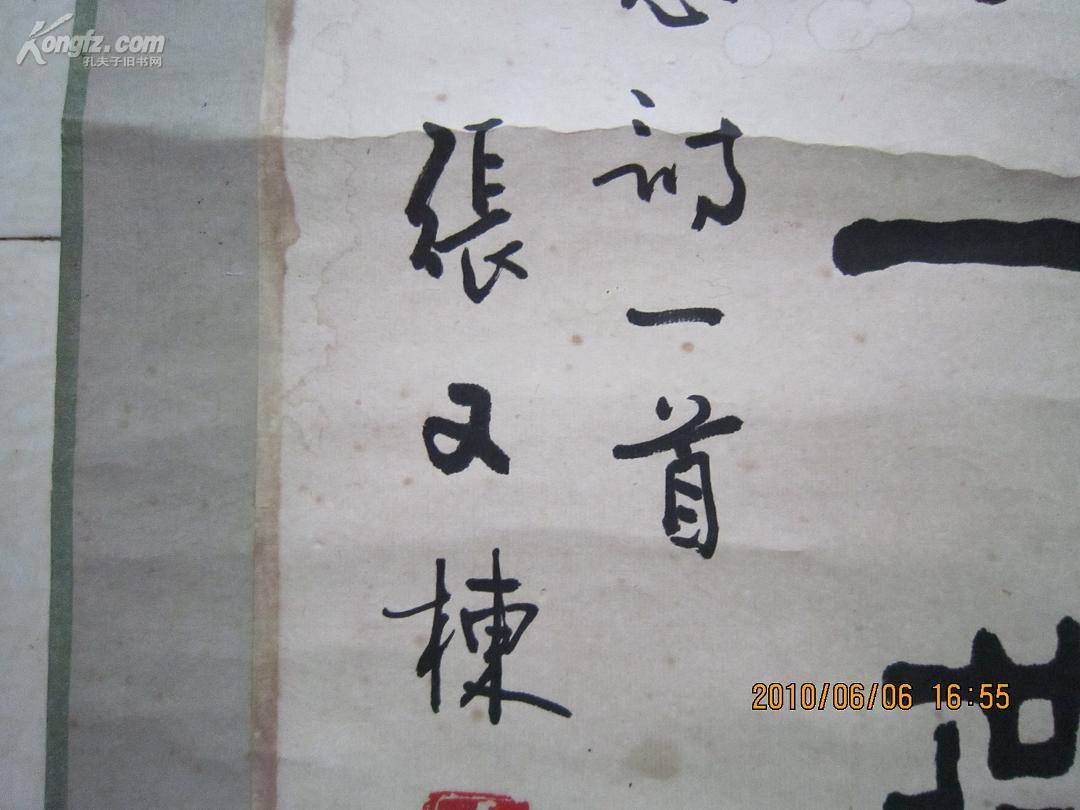 Kongfz.com
孔夫子旧书网
一
世
诗一首
張又棟
2010/06/06 16:55